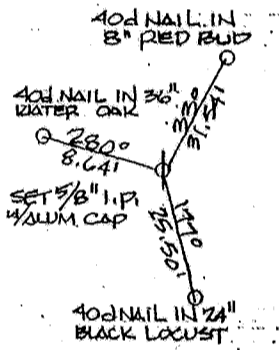 40d NAIL IN
8" RED BUD
40d NAIL IN 36"
WATER OAK
33°
31.54'
280°
8.64'
SET 5/8" I.P.
W/ALUM. CAP
177°
25.50'
40d NAIL IN 24"
BLACK LOCUST